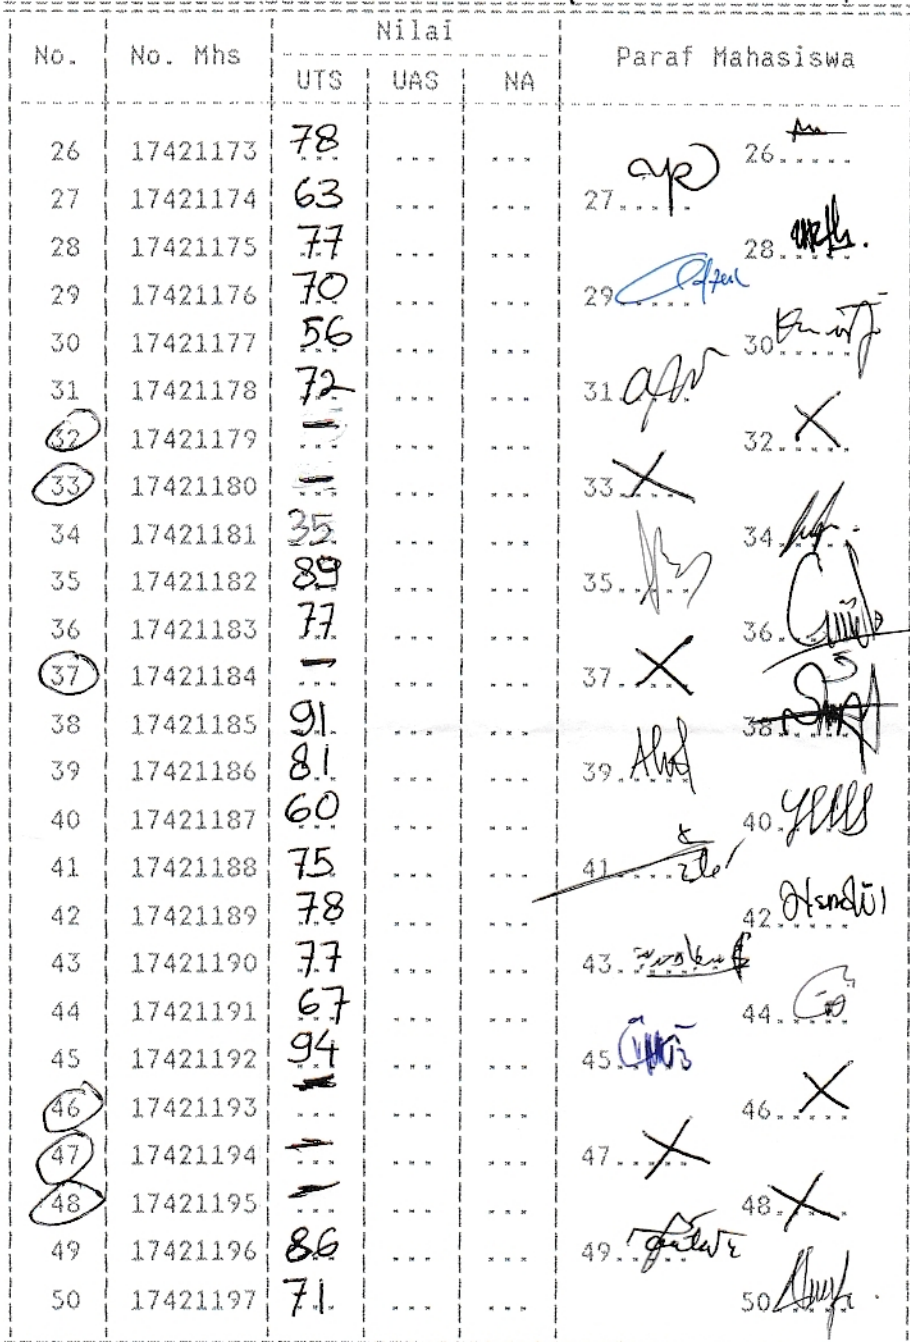 Nilai
No. No. Mhs Paraf Mahasiswa
UTS UAS NA
26 17421173 78 ... ... 26.....
27 17421174 63 ... ... 27.....
28 17421175 77 ... ... 28.....
29 17421176 70 ... ... 29.....
30 17421177 56 ... ... 30.....
31 17421178 72 ... ... 31.....
32 17421179 – ... ... 32..... X
33 17421180 – ... ... 33..... X
34 17421181 35 ... ... 34.....
35 17421182 89 ... ... 35.....
36 17421183 77 ... ... 36.....
37 17421184 – ... ... 37..... X
38 17421185 91 ... ... 38.....
39 17421186 81 ... ... 39.....
40 17421187 60 ... ... 40.....
41 17421188 75 ... ... 41.....
42 17421189 78 ... ... 42.....
43 17421190 77 ... ... 43.....
44 17421191 67 ... ... 44.....
45 17421192 94 ... ... 45.....
46 17421193 – ... ... 46..... X
47 17421194 – ... ... 47..... X
48 17421195 – ... ... 48..... X
49 17421196 86 ... ... 49.....
50 17421197 71 ... ... 50.....